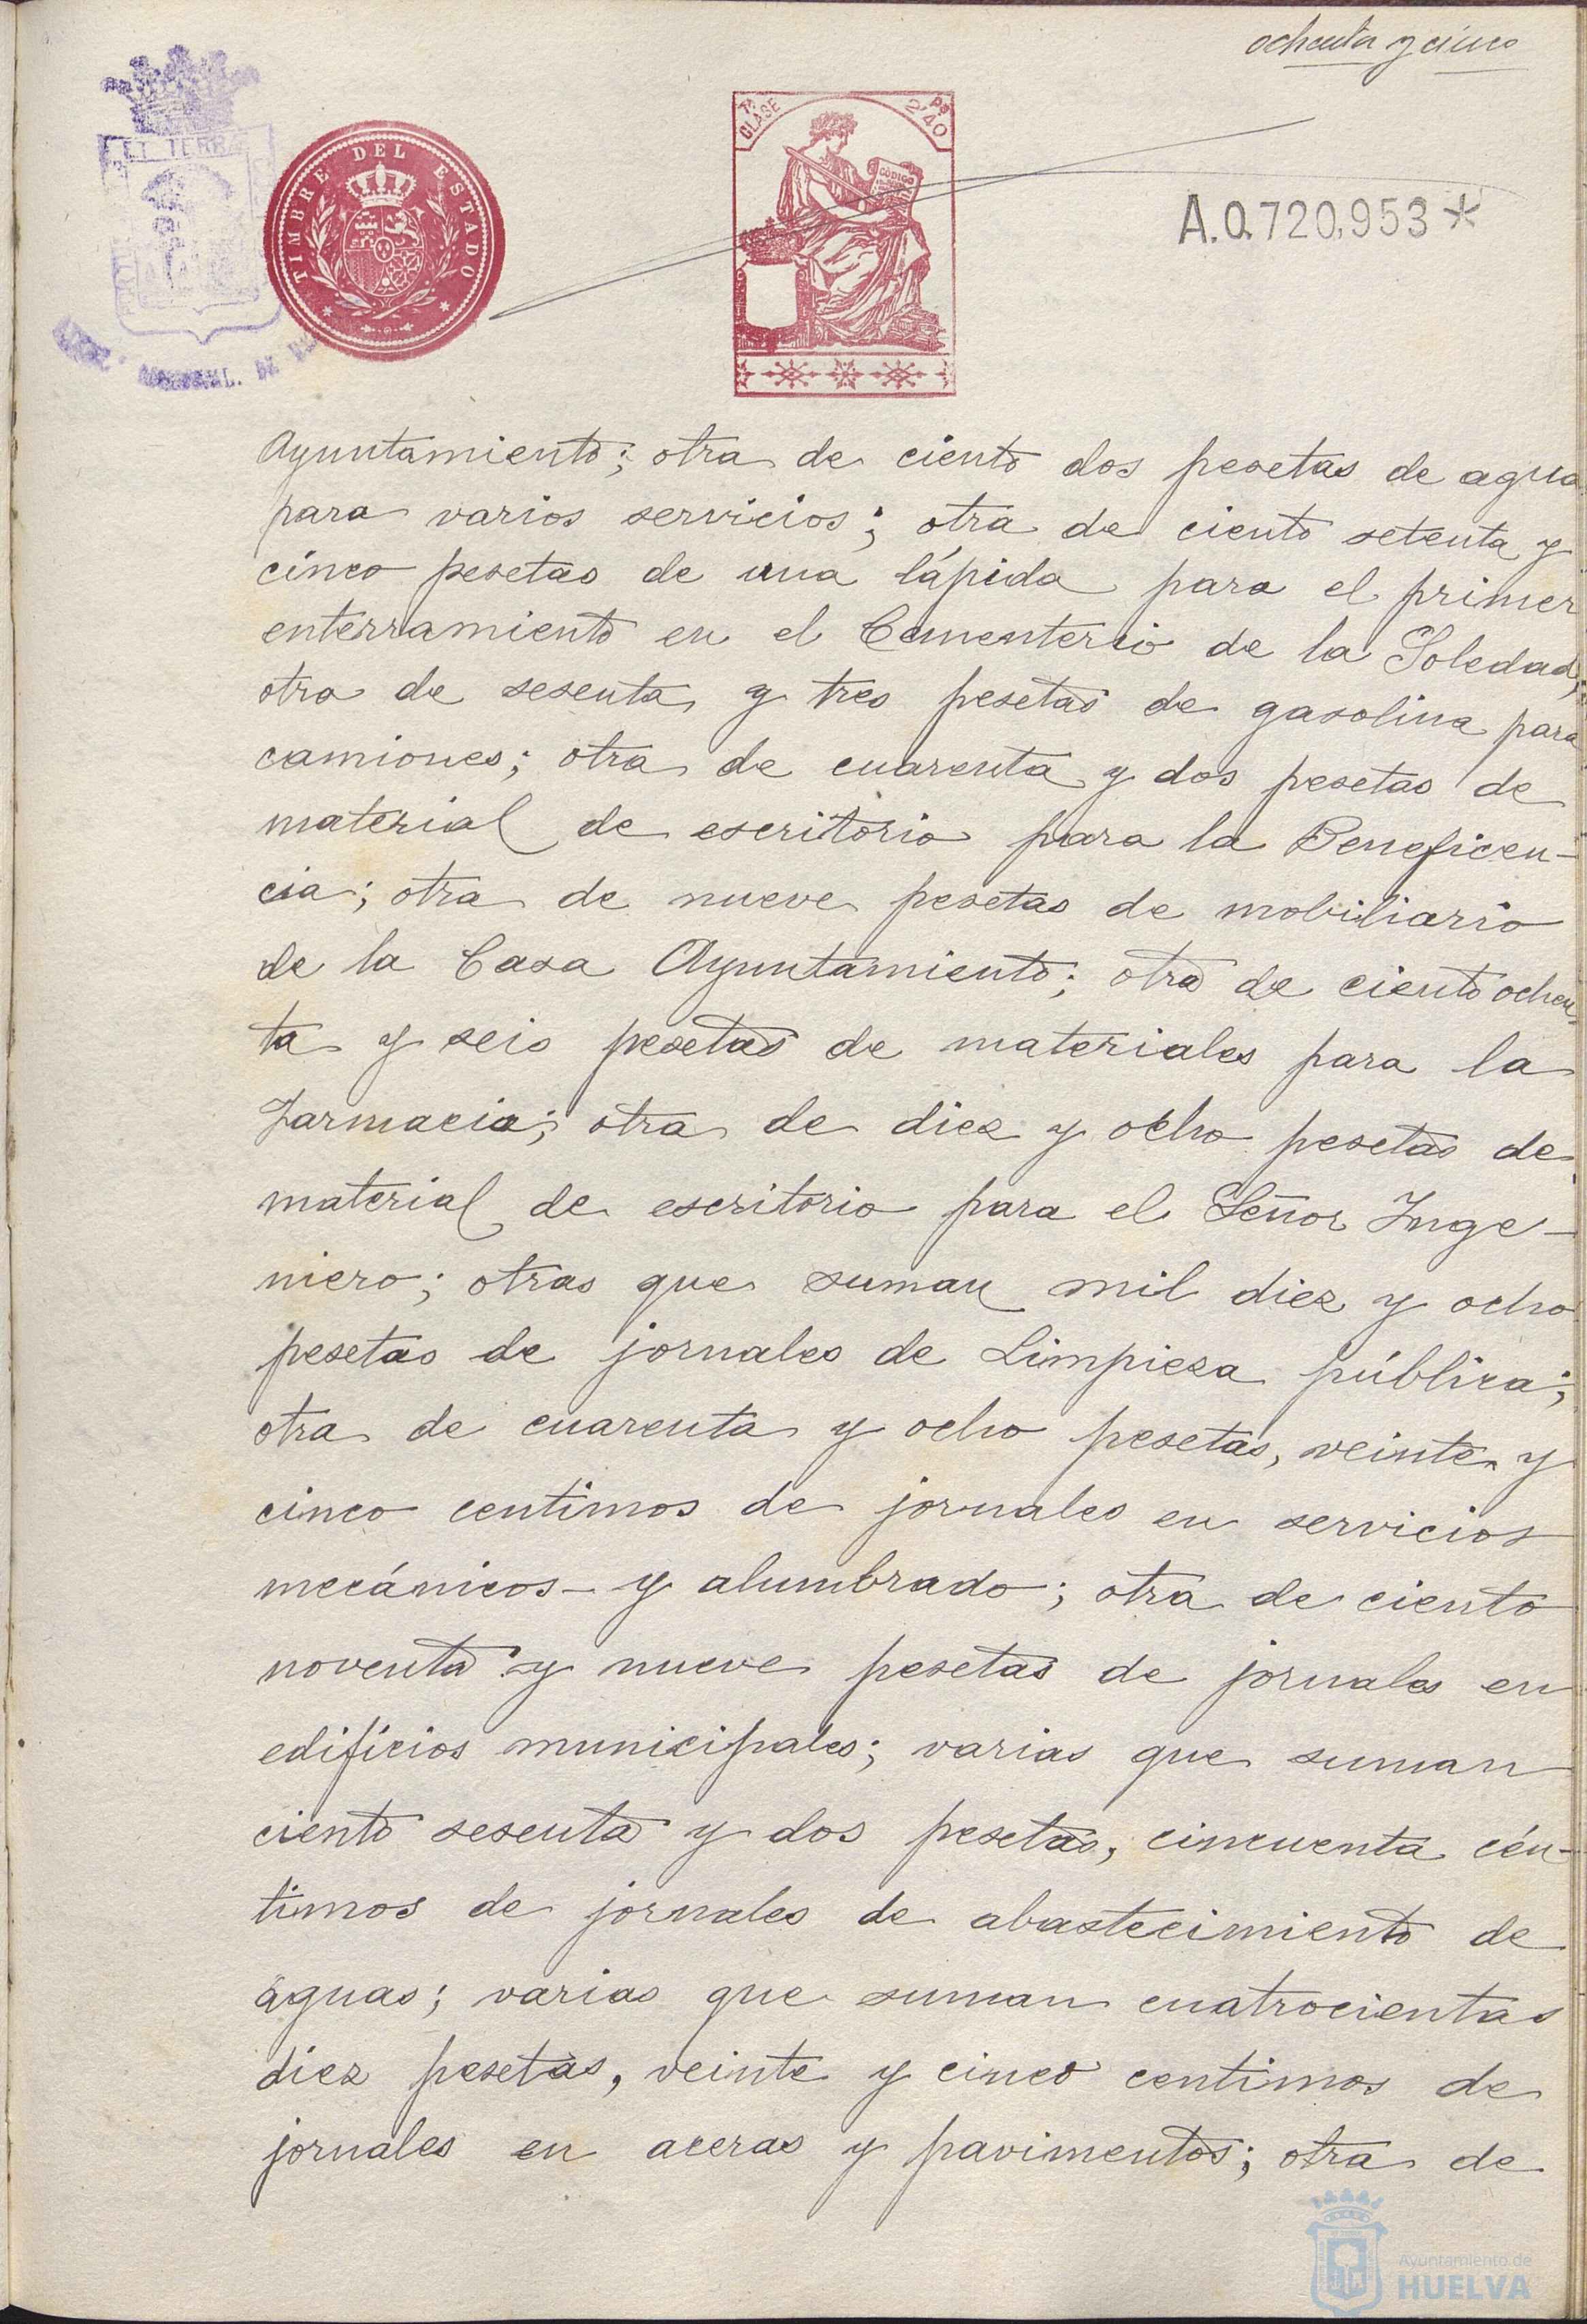 ochenta y cinco
ET TERRA
TIMBRE DEL ESTADO
7ª CLASE
2'40 Ps
CÓDIGO
A.0.720,953*
Ayuntamiento; otra de ciento dos pesetas de agua
para varios servicios; otra de ciento setenta y
cinco pesetas de una lápida para el primer
enterramiento en el Cementerio de la Soledad;
otra de sesenta y tres pesetas de gasolina para
camiones; otra de cuarenta y dos pesetas de
material de escritorio para la Beneficen-
cia; otra de nueve pesetas de mobiliario
de la Casa Ayuntamiento; otra de ciento ochen
ta y seis pesetas de materiales para la
Farmacia; otra de diez y ocho pesetas de
material de escritorio para el Señor Inge-
niero; otras que suman mil diez y ocho
pesetas de jornales de Limpieza pública;
otra de cuarenta y ocho pesetas, veinte y
cinco centimos de jornales en servicios
mecánicos y alumbrado; otra de ciento
noventa y nueve pesetas de jornales en
edificios municipales; varias que suman
ciento sesenta y dos pesetas, cincuenta cén-
timos de jornales de abastecimiento de
aguas; varias que suman cuatrocientas
diez pesetas, veinte y cinco centimos de
jornales en aceras y pavimentos; otra de
Ayuntamiento de
HUELVA